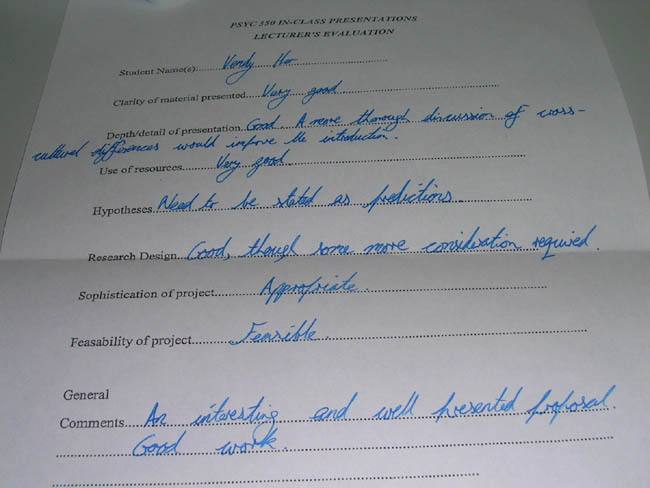 PSYC 350 IN-CLASS PRESENTATIONS
LECTURER'S EVALUATION
Student Name(s)......Vendy Hor
Clarity of material presented....Very good
Depth/detail of presentation. Good A more thorough discussion of cross-
cultural differences would improve the introduction.
Use of resources..........Very good
Hypotheses Need to be stated as predictions
Research Design...Good, though some more consideration required.
Sophistication of project..........Appropriate.
Feasability of project..........Feasible.
General
Comments....An interesting and well presented proposal.
Good work.